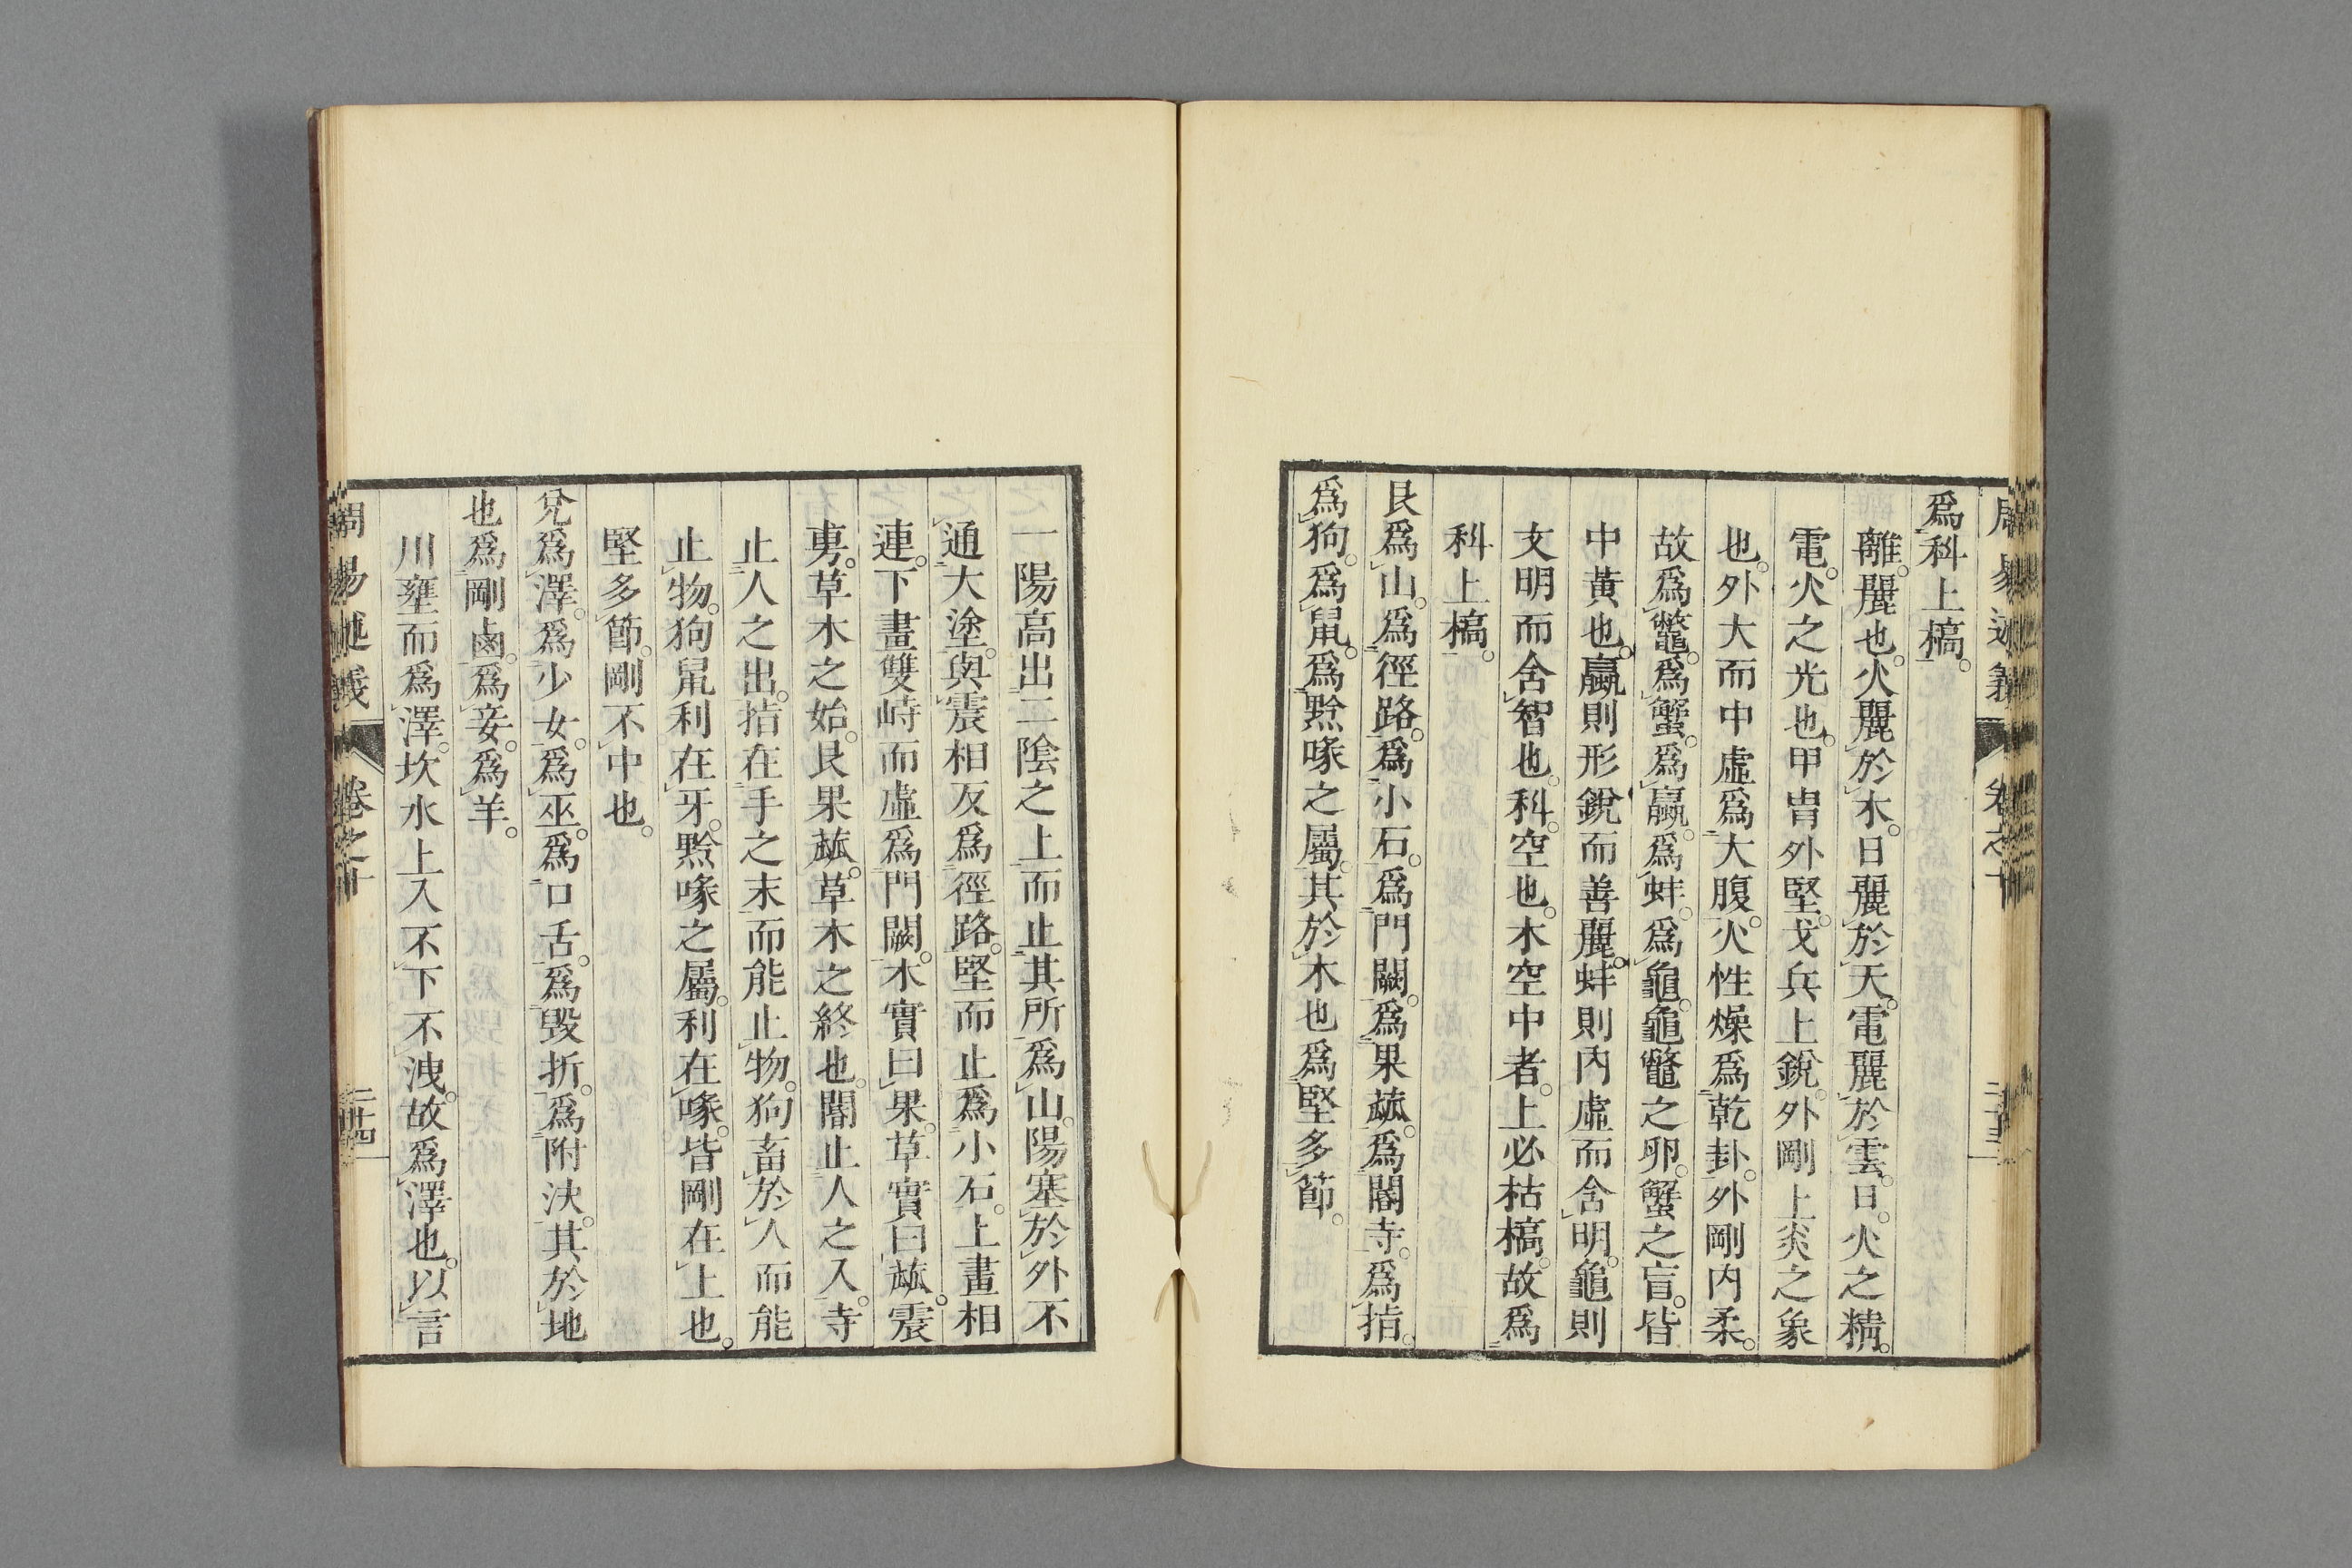 周易述義 卷之十
爲科上槁。
離。麗也。火麗於木。日麗於天。電麗於雲。日。火之精。
電。火之光也。甲冑外堅。戈兵上銳。外剛上炎之象
也。外大而中虛爲大腹。火性燥爲乾卦。外剛內柔。
故爲鼈。爲蟹。爲蠃。爲蚌。爲龜。龜鼈之卵。蟹之肓。皆
中黃也。蠃則形銳而善麗。蚌則內虛而含明。龜則
文明而含智也。科。空也。木空中者。上必枯槁。故爲
科上槁。
艮爲山。爲徑路。爲小石。爲門闕。爲果蓏。爲閽寺。爲指。
爲狗。爲鼠。爲黔喙之屬。其於木也爲堅多節。
一陽高出二陰之上而止其所爲山。陽塞於外不
通大塗。與震相反爲徑路。堅而止爲小石。上畫相
連。下畫雙峙而虛爲門闕。木實曰果。草實曰蓏。震
旉。草木之始。艮果蓏。草木之終也。閽止人之入。寺
止人之出。指在手之末而能止物。狗畜於人而能
止物。狗鼠利在牙。黔喙之屬。利在喙。皆剛在上也。
堅多節。剛不中也。
兌爲澤。爲少女。爲巫。爲口舌。爲毀折。爲附決。其於地
也爲剛鹵。爲妾。爲羊。
川壅而爲澤。坎水上入不下不洩。故爲澤也。以言
周易述義 卷之十 二十四